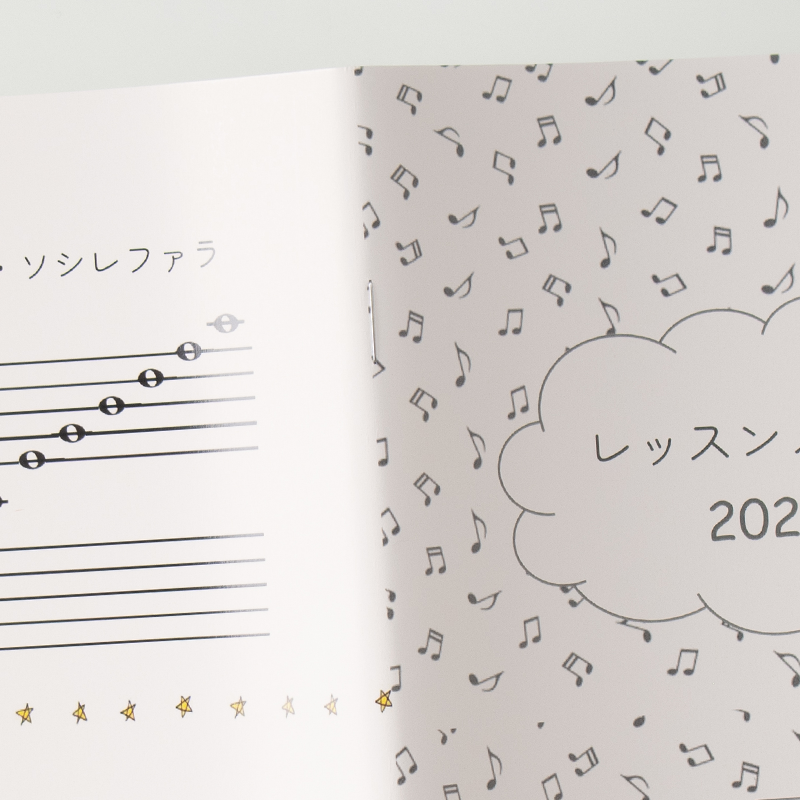 ・ソシレファラ
レッスン
202